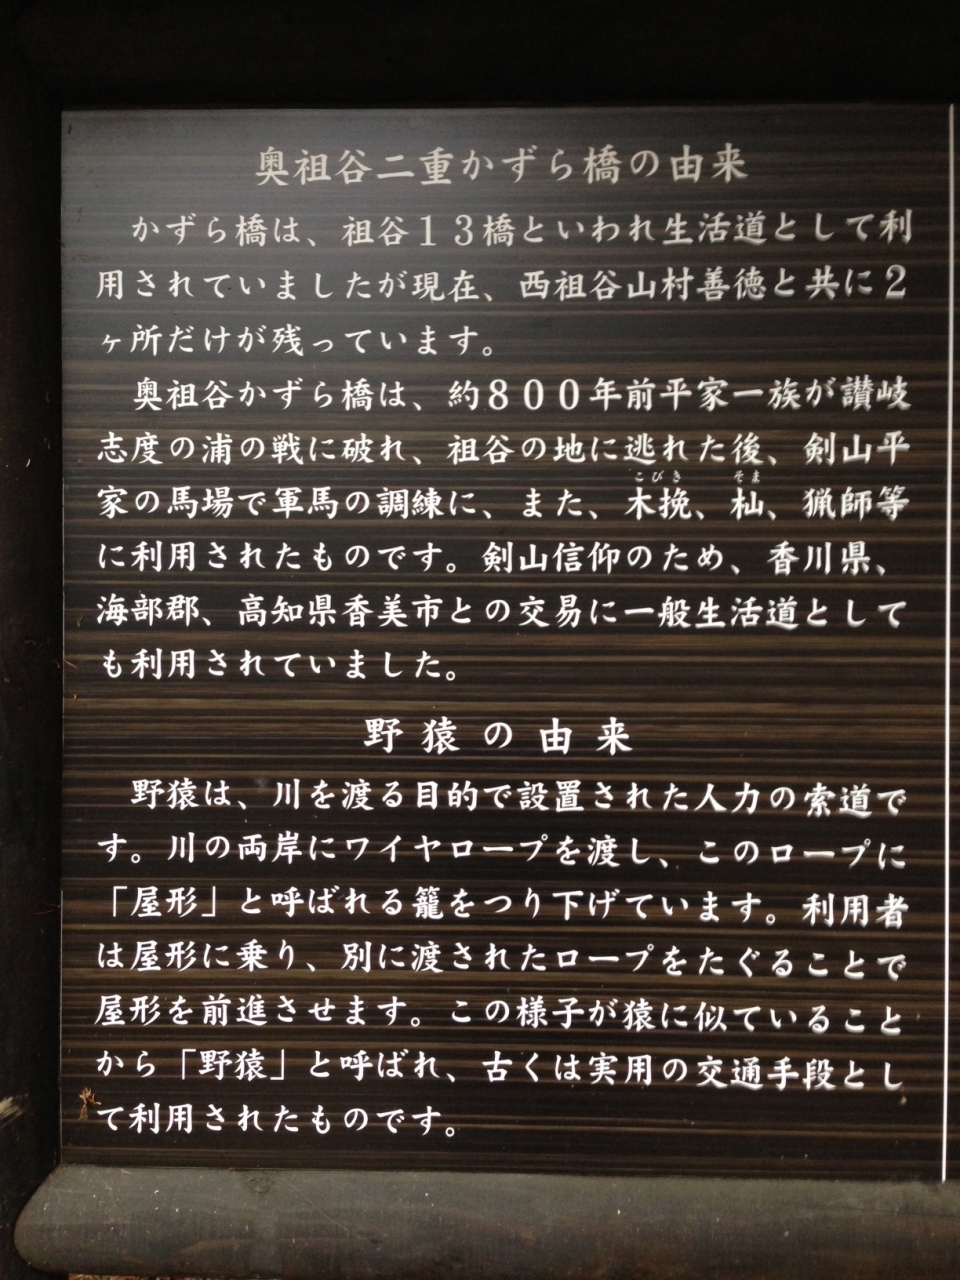 奥祖谷二重かずら橋の由来
かずら橋は、祖谷１３橋といわれ生活道として利
用されていましたが現在、西祖谷山村善徳と共に２
ヶ所だけが残っています。
奥祖谷かずら橋は、約８００年前平家一族が讃岐
志度の浦の戦に破れ、祖谷の地に逃れた後、剣山平
こびき そま
家の馬場で軍馬の調練に、また、木挽、杣、猟師等
に利用されたものです。剣山信仰のため、香川県、
海部郡、高知県香美市との交易に一般生活道として
も利用されていました。
野猿の由来
野猿は、川を渡る目的で設置された人力の索道で
す。川の両岸にワイヤロープを渡し、このロープに
「屋形」と呼ばれる籠をつり下げています。利用者
は屋形に乗り、別に渡されたロープをたぐることで
屋形を前進させます。この様子が猿に似ていること
から「野猿」と呼ばれ、古くは実用の交通手段とし
て利用されたものです。